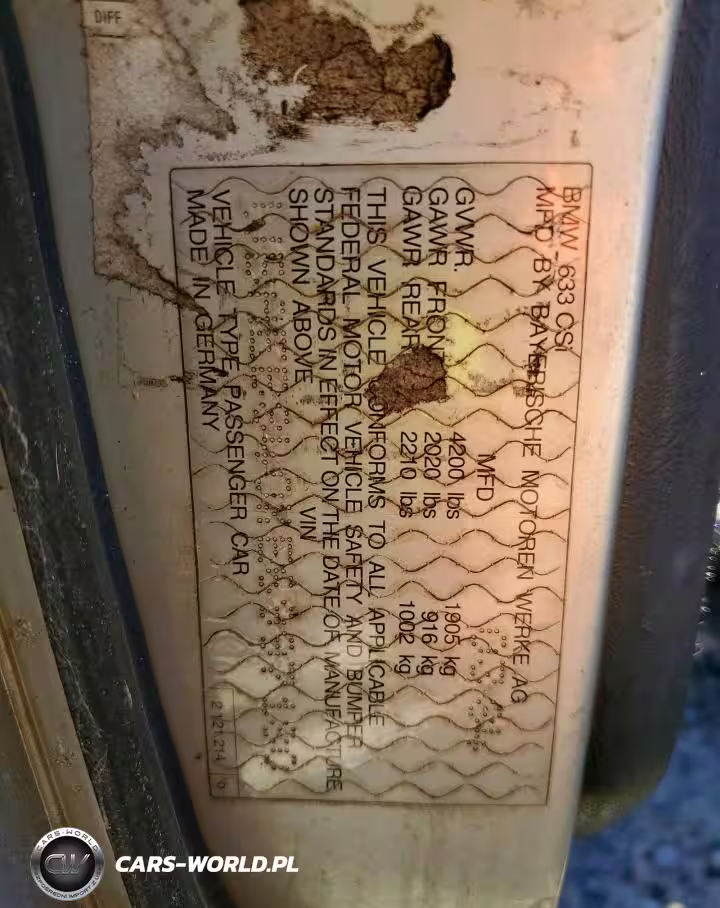 DIFF
BMW - 633 CSi
MFD BY BAYERISCHE MOTOREN WERKE AG
MFD
GVWR. 4200 lbs 1905 kg
GAWR FRONT 2020 lbs 916 kg
GAWR REAR 2210 lbs 1002 kg
THIS VEHICLE CONFORMS TO ALL APPLICABLE
FEDERAL MOTOR VEHICLE SAFETY AND BUMPER
STANDARDS IN EFFECT ON THE DATE OF MANUFACTURE
SHOWN ABOVE VIN
VEHICLE TYPE PASSENGER CAR
MADE IN GERMANY
2 121 214
CARS-WORLD
CW
CARS-WORLD.PL